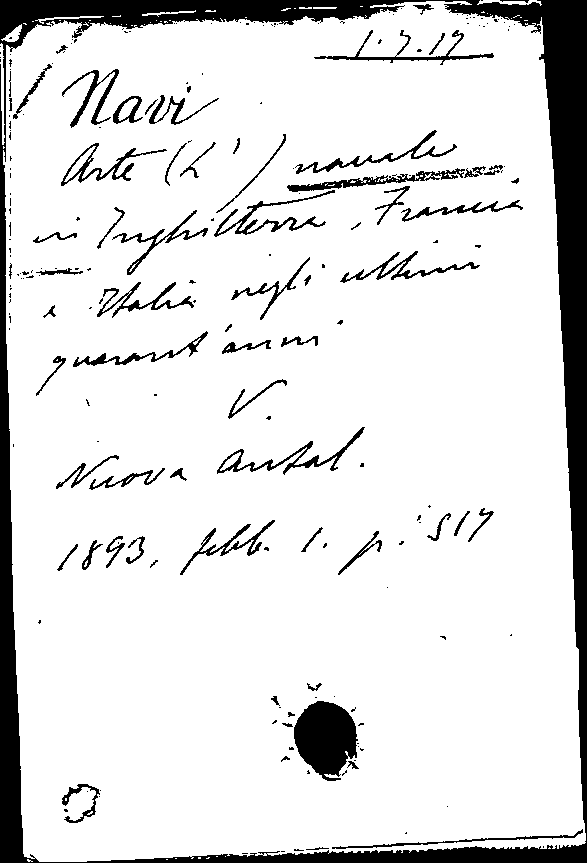 1.7.17
Navi
Arte (L') navale
in Inghilterra, Francia
e Italia negli ultimi
quarant'anni
V.
Nuova Antol.
1893, febb. 1. p. 517